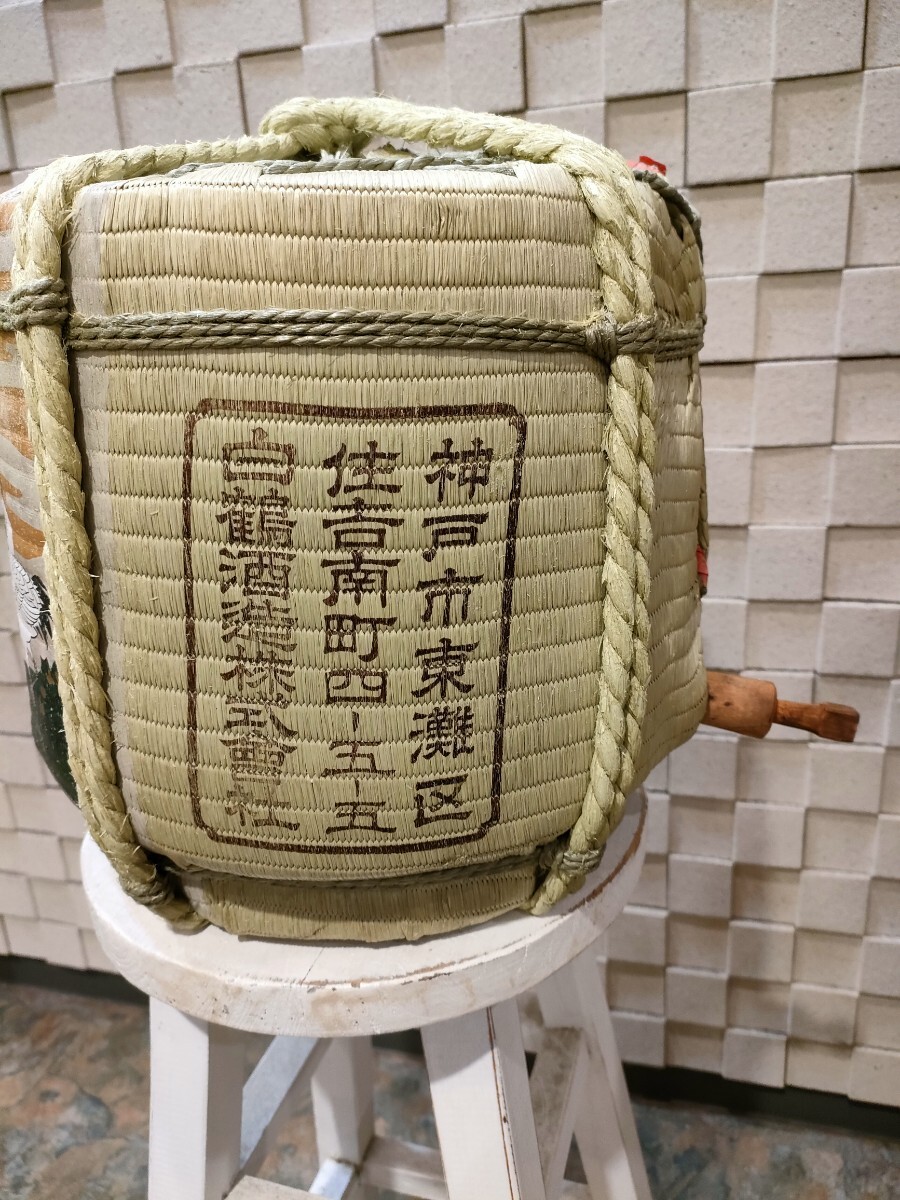 神戸市東灘区
住吉南町四-五-五
白鶴酒造株式會社